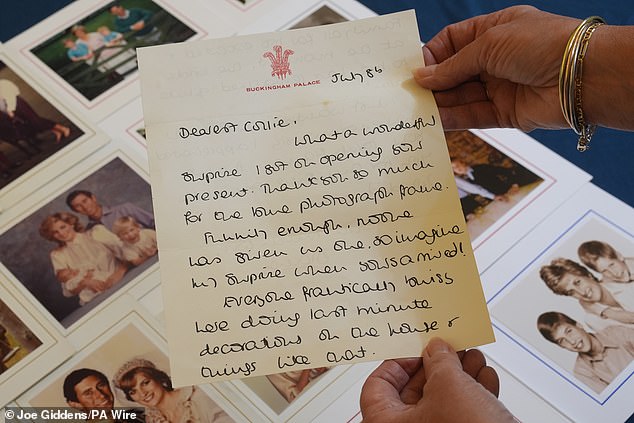 BUCKINGHAM PALACE
July 86
Dearest Collie,
What a wonderful
surprise I got on opening your
present. Thank you so much
for the photograph frame.
Funnily enough, no one
has given us one, so imagine
my surprise when yours arrived!
Everyone frantically busy
here doing last minute
decorations on the house &
things like that.
© Joe Giddens/PA Wire